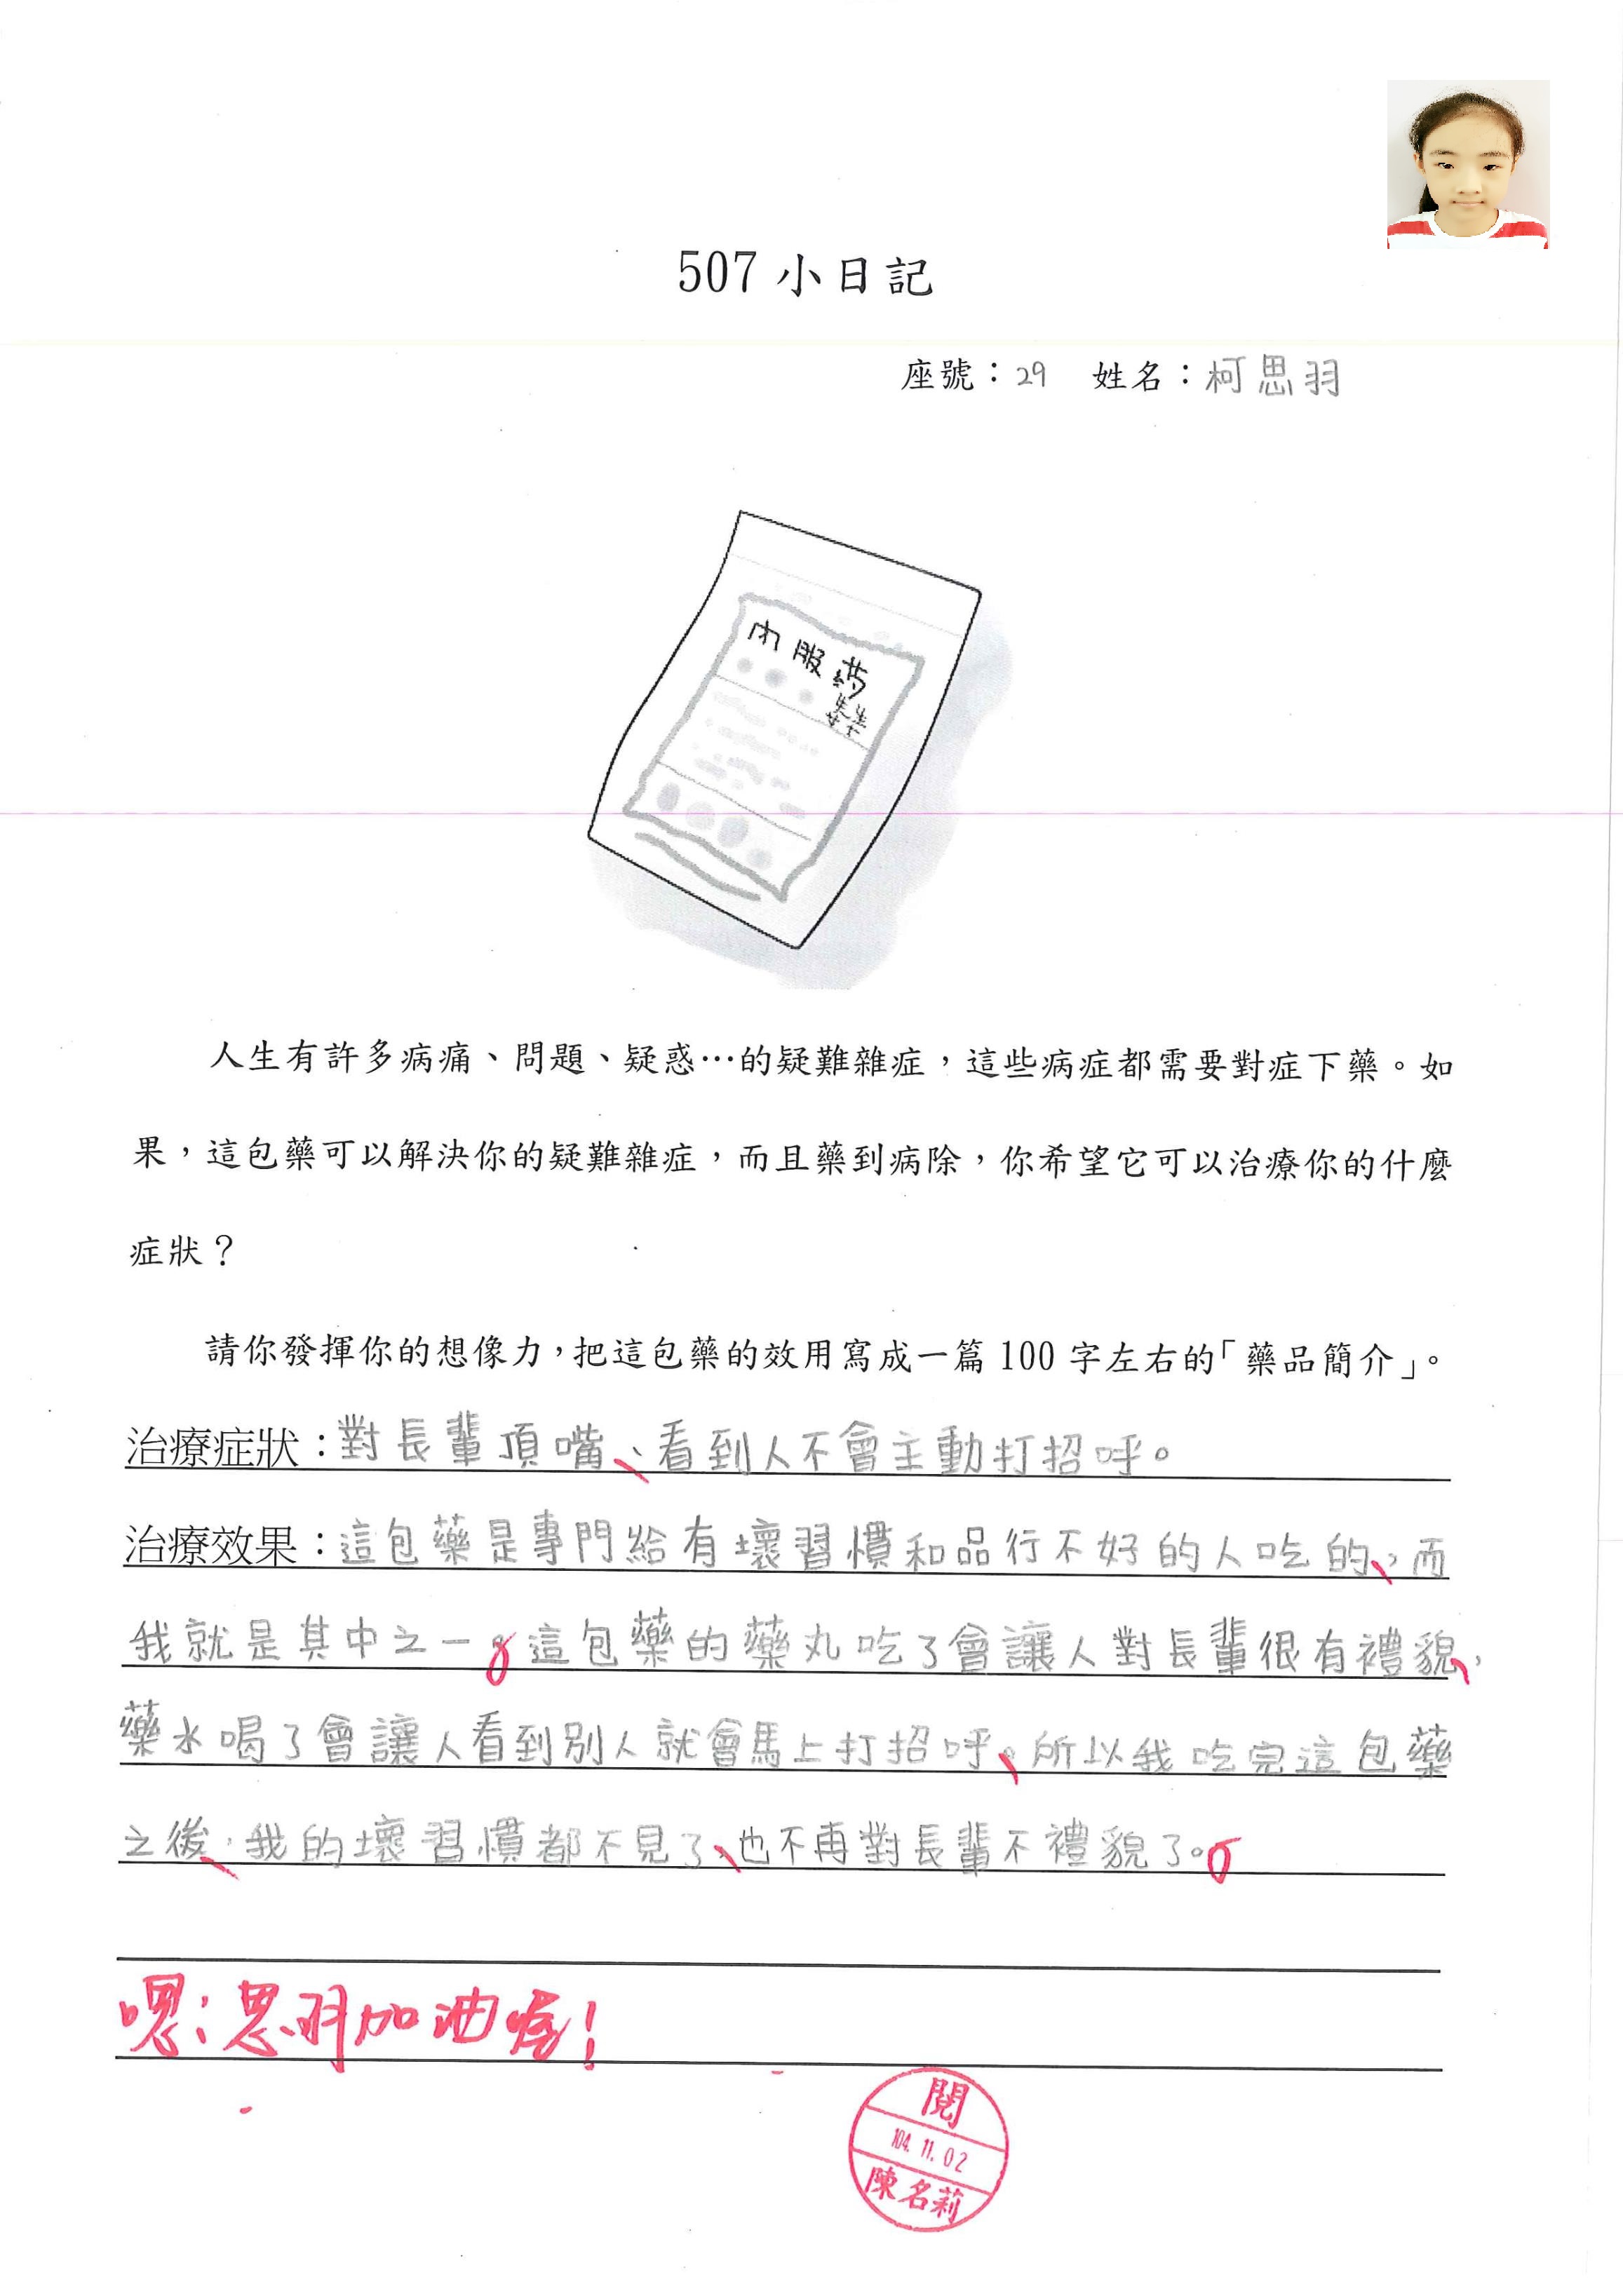 507 小日記
座號：29 姓名：柯思羽
內服藥
人生有許多病痛、問題、疑惑…的疑難雜症，這些病症都需要對症下藥。如
果，這包藥可以解決你的疑難雜症，而且藥到病除，你希望它可以治療你的什麼
症狀？
請你發揮你的想像力，把這包藥的效用寫成一篇 100 字左右的「藥品簡介」。
治療症狀：對長輩頂嘴、看到人不會主動打招呼。
治療效果：這包藥是專門給有壞習慣和品行不好的人吃的，而
我就是其中之一。這包藥的藥丸吃了會讓人對長輩很有禮貌，
藥水喝了會讓人看到別人就會馬上打招呼。所以我吃完這包藥
之後，我的壞習慣都不見了，也不再對長輩不禮貌了。
嗯；思羽加油喔！
閱
104.11.02
陳名莉